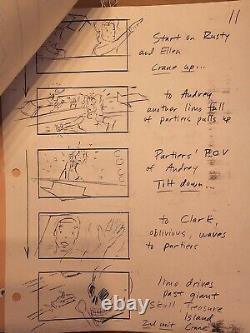 11
Start on Rusty
and Ellen
Crane up...
to Audrey
another limo full
of partiers pulls up
Partiers' P.O.V
of Audrey
Tilt down...
to Clark,
oblivious, waves
to partiers
limo drives
past giant
skull, Treasure
Island
2nd unit
Crane